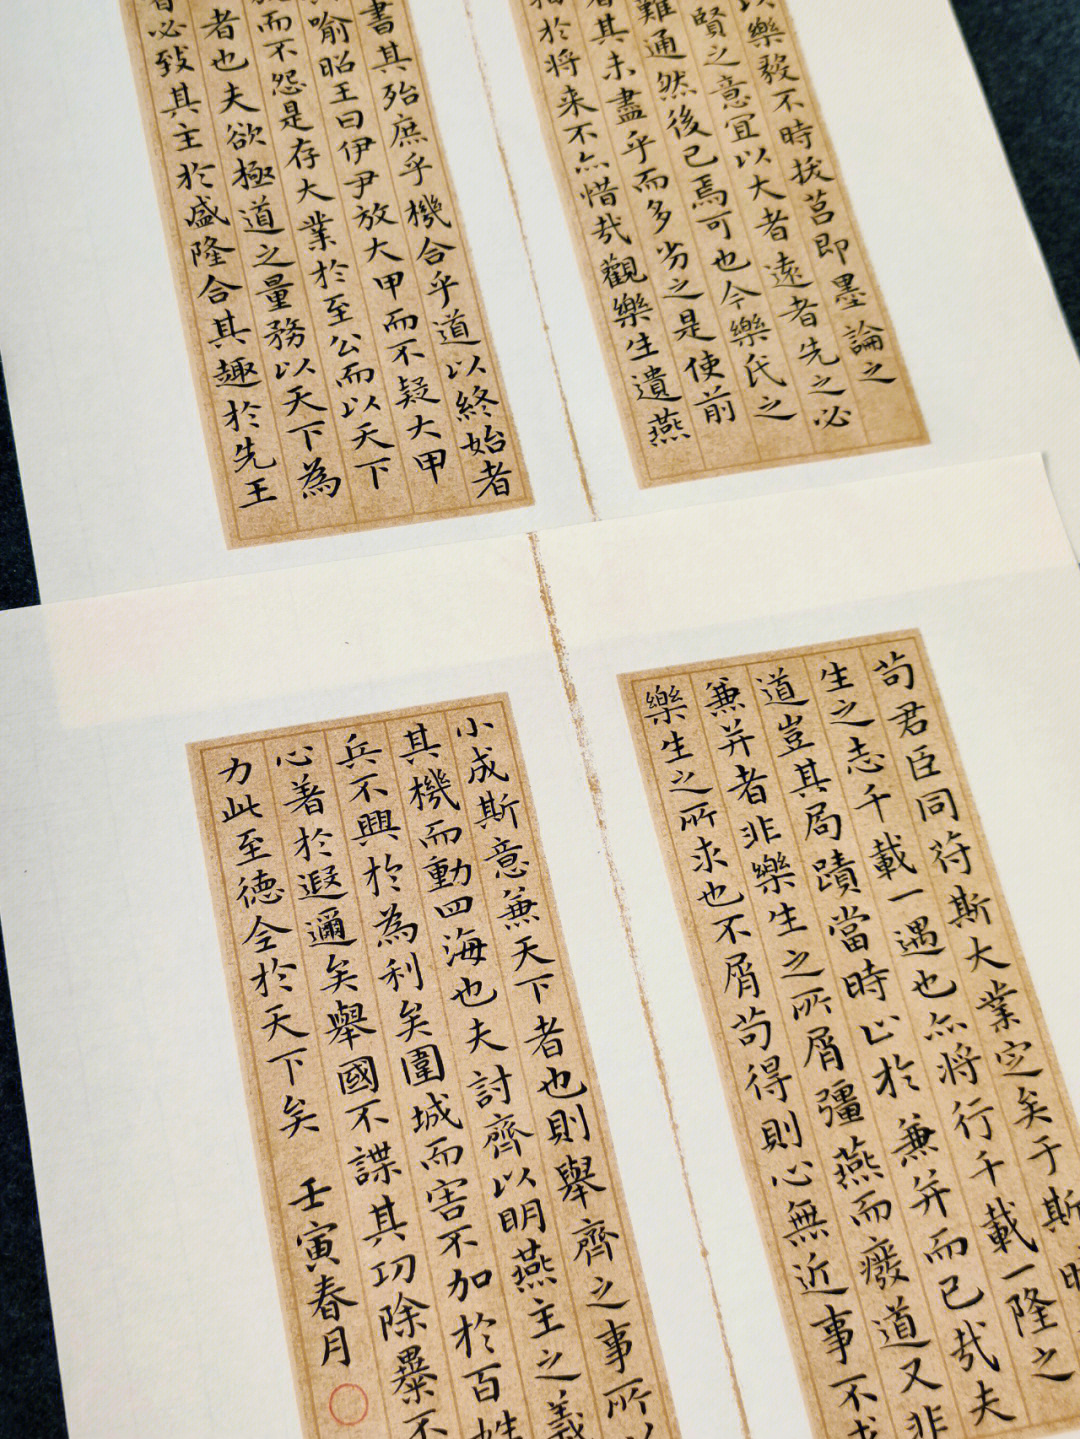 以樂毅不時拔莒即墨論之
賢之意宜以大者遠者先之必
難通然後已焉可也今樂氏之
者其未盡乎而多劣之是使前
於將来不亦惜哉觀樂生遺燕
書其殆庶乎機合乎道以終始者
喻昭王曰伊尹放大甲而不疑大甲
而不怨是存大業於至公而以天下
者也夫欲極道之量務以天下為
者必致其主於盛隆合其趣於先王
苟君臣同符斯大業定矣于斯時
生之志千載一遇也亦將行千載一隆之
道豈其局蹟當時止於兼并而已哉夫
兼并者非樂生之所屑彊燕而廢道又非
樂生之所求也不屑苟得則心無近事不求
小成斯意兼天下者也則舉齊之事所以
其機而動四海也夫討齊以明燕主之義
兵不興於為利矣圍城而害不加於百姓
心著於遐邇矣舉國不謀其功除暴不
力此至德令於天下矣 壬寅春月